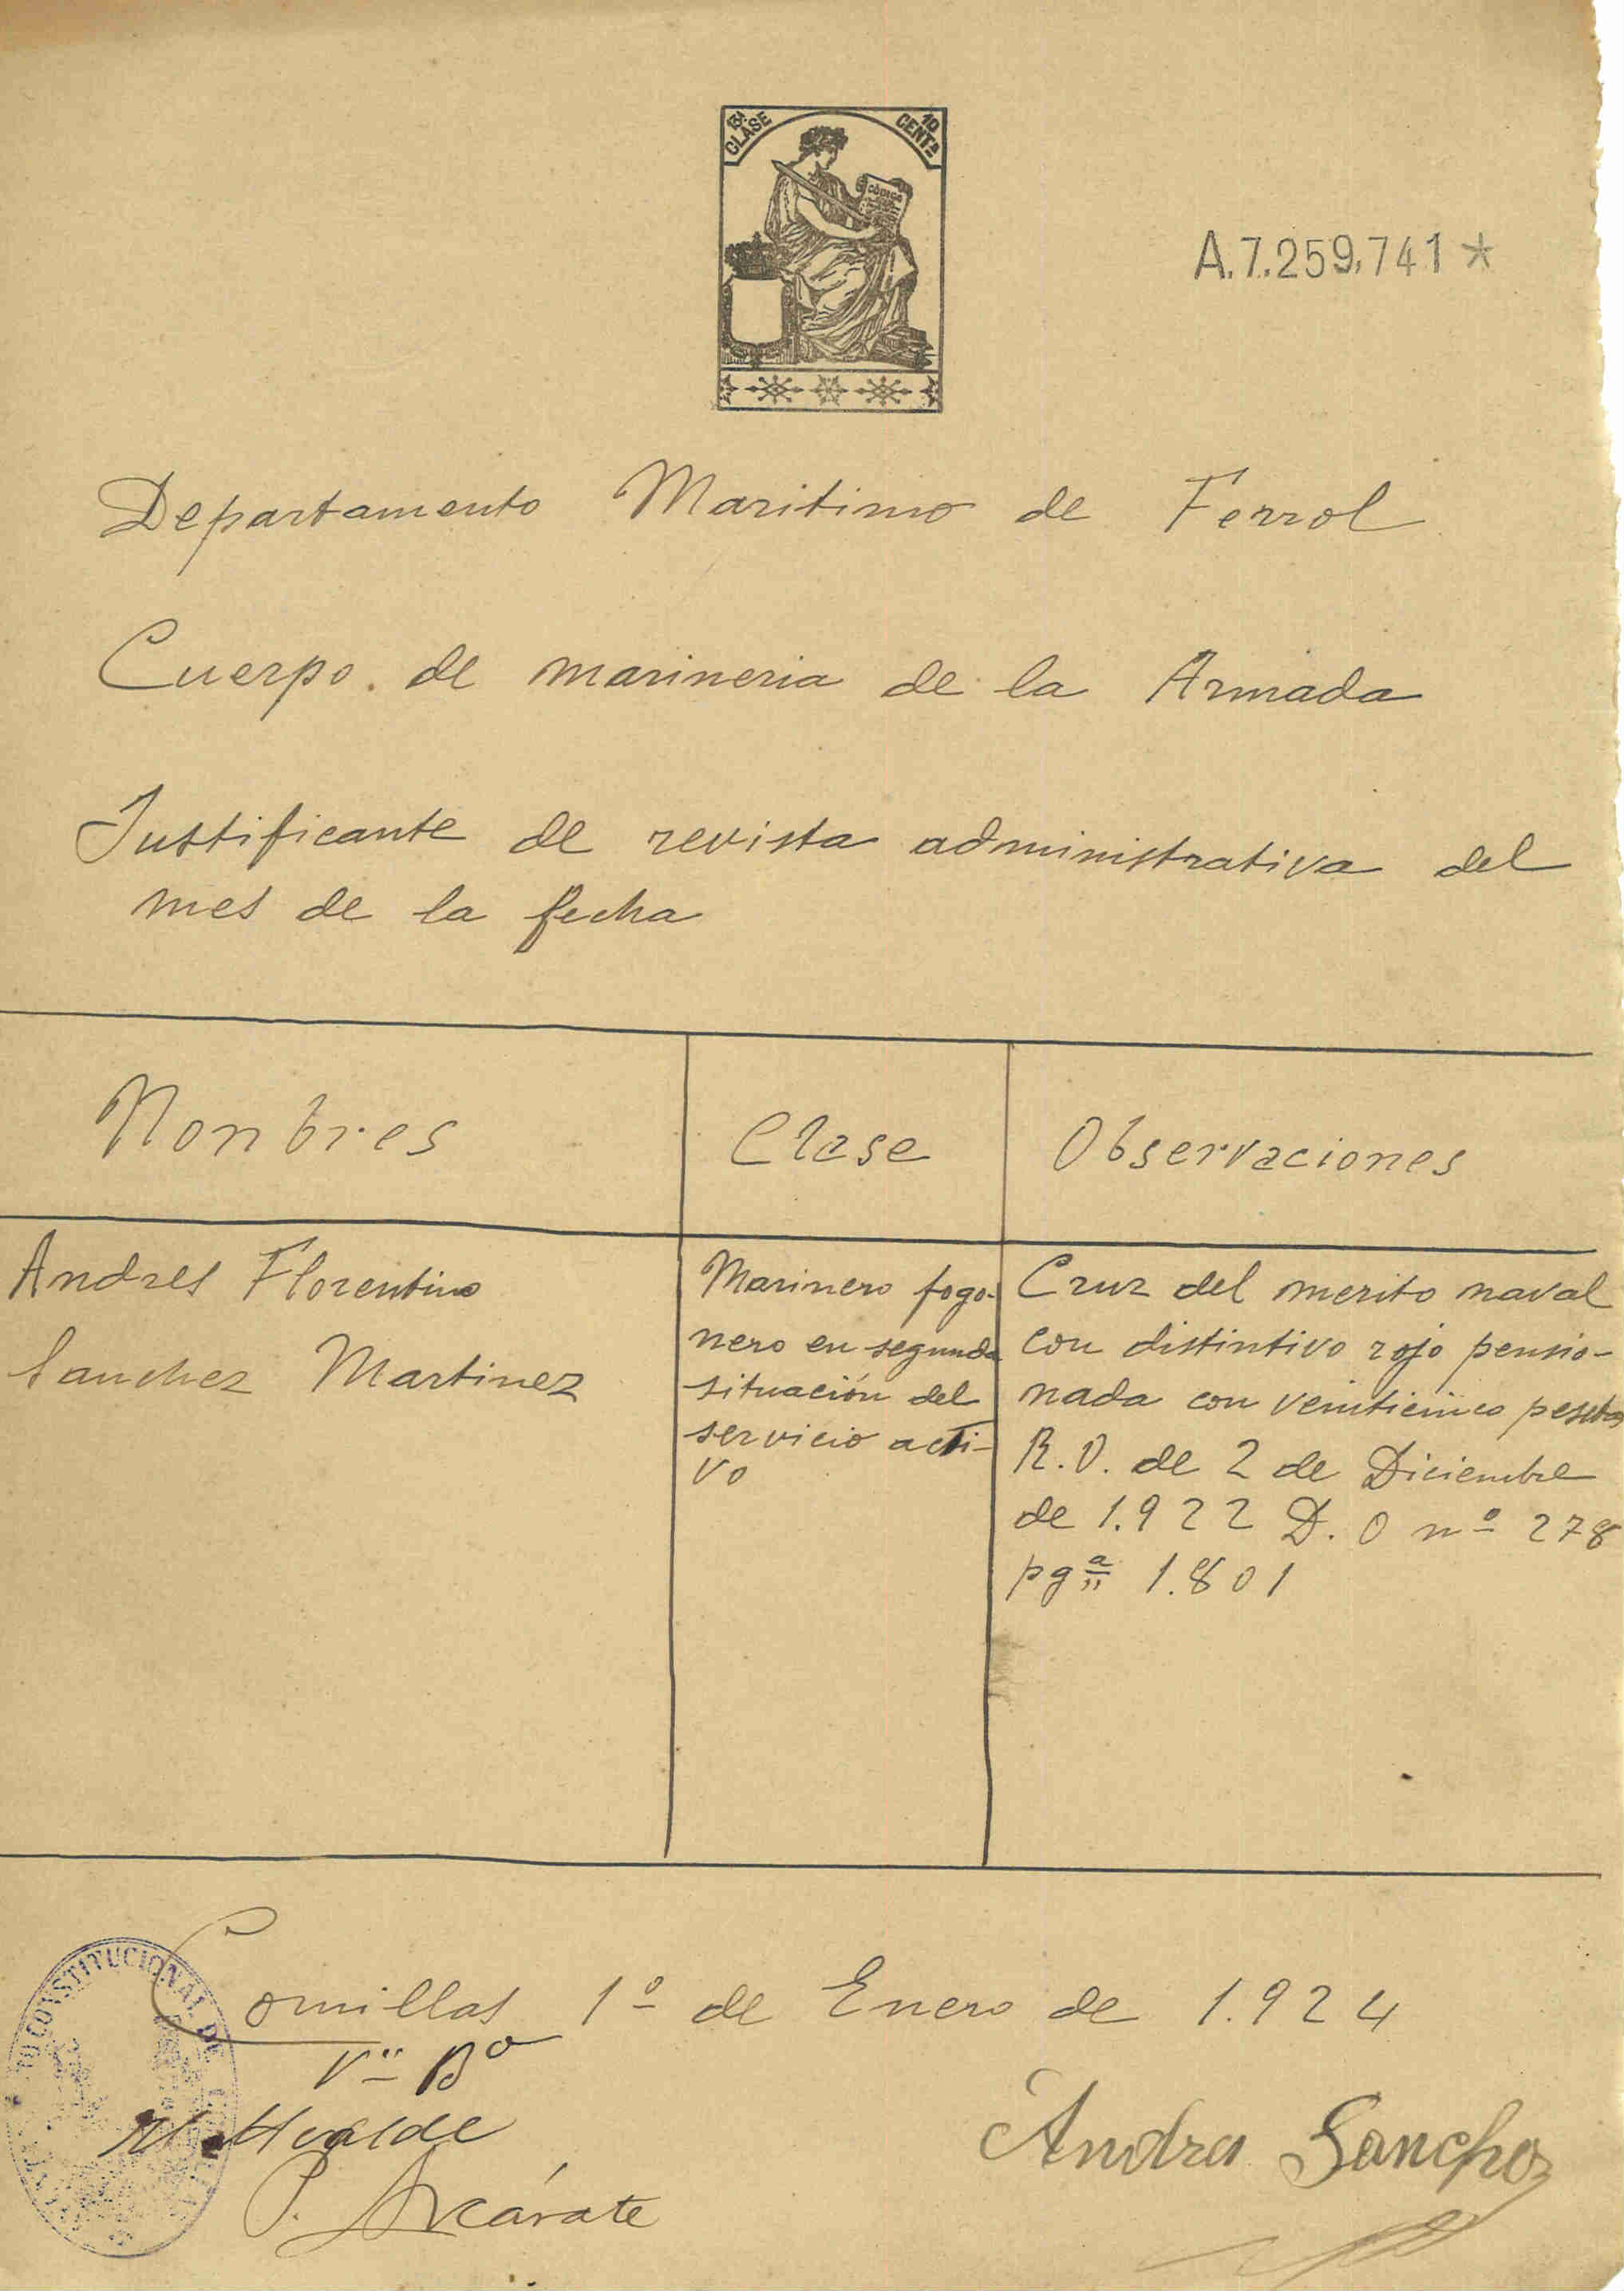 13ª CLASE
10 CENTS
CODIGO
A.7.259.741*
Departamento Maritimo de Ferrol
Cuerpo de marineria de la Armada
Justificante de revista administrativa del
mes de la fecha
Nonbres
Clase
Observaciones
Andres Florentino
Sanchez Martinez
Marinero fogo-
nero en segunda
situación del
servicio acti-
vo
Cruz del merito naval
con distintivo rojo pensio-
nada con veinticinco pesetas
R.O. de 2 de Diciembre
de 1.922 D.O nº 278
pgª 1.801
CONSTITUCIONAL DE
Comillas 1º de Enero de 1.924
Vº Bº
El Alcalde
Andres Sanchez